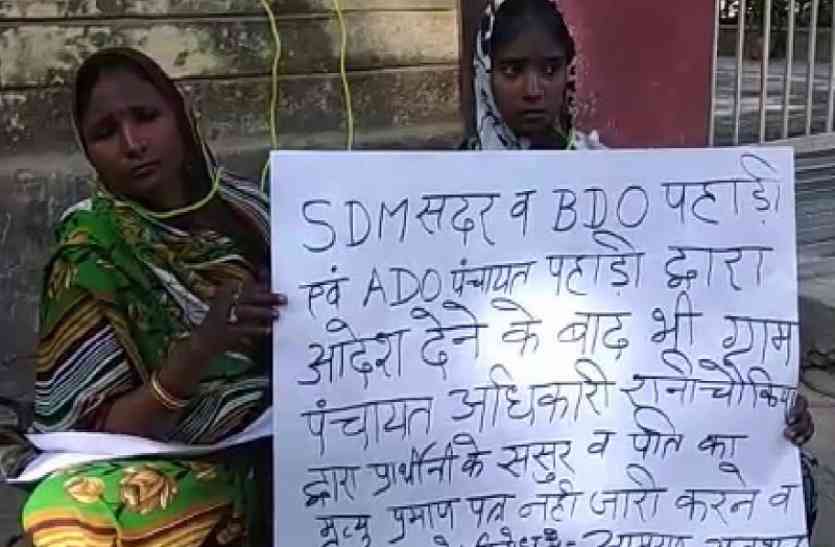 SDM सदर व BDO पहाड़ी
एवं ADO पंचायत पहाड़ी द्वारा
आदेश देने के बाद भी ग्राम
पंचायत अधिकारी रानीचौकिया
द्वारा प्रार्थीनी के ससुर व पति का
मृत्यु प्रमाण पत्र नही जारी करने व